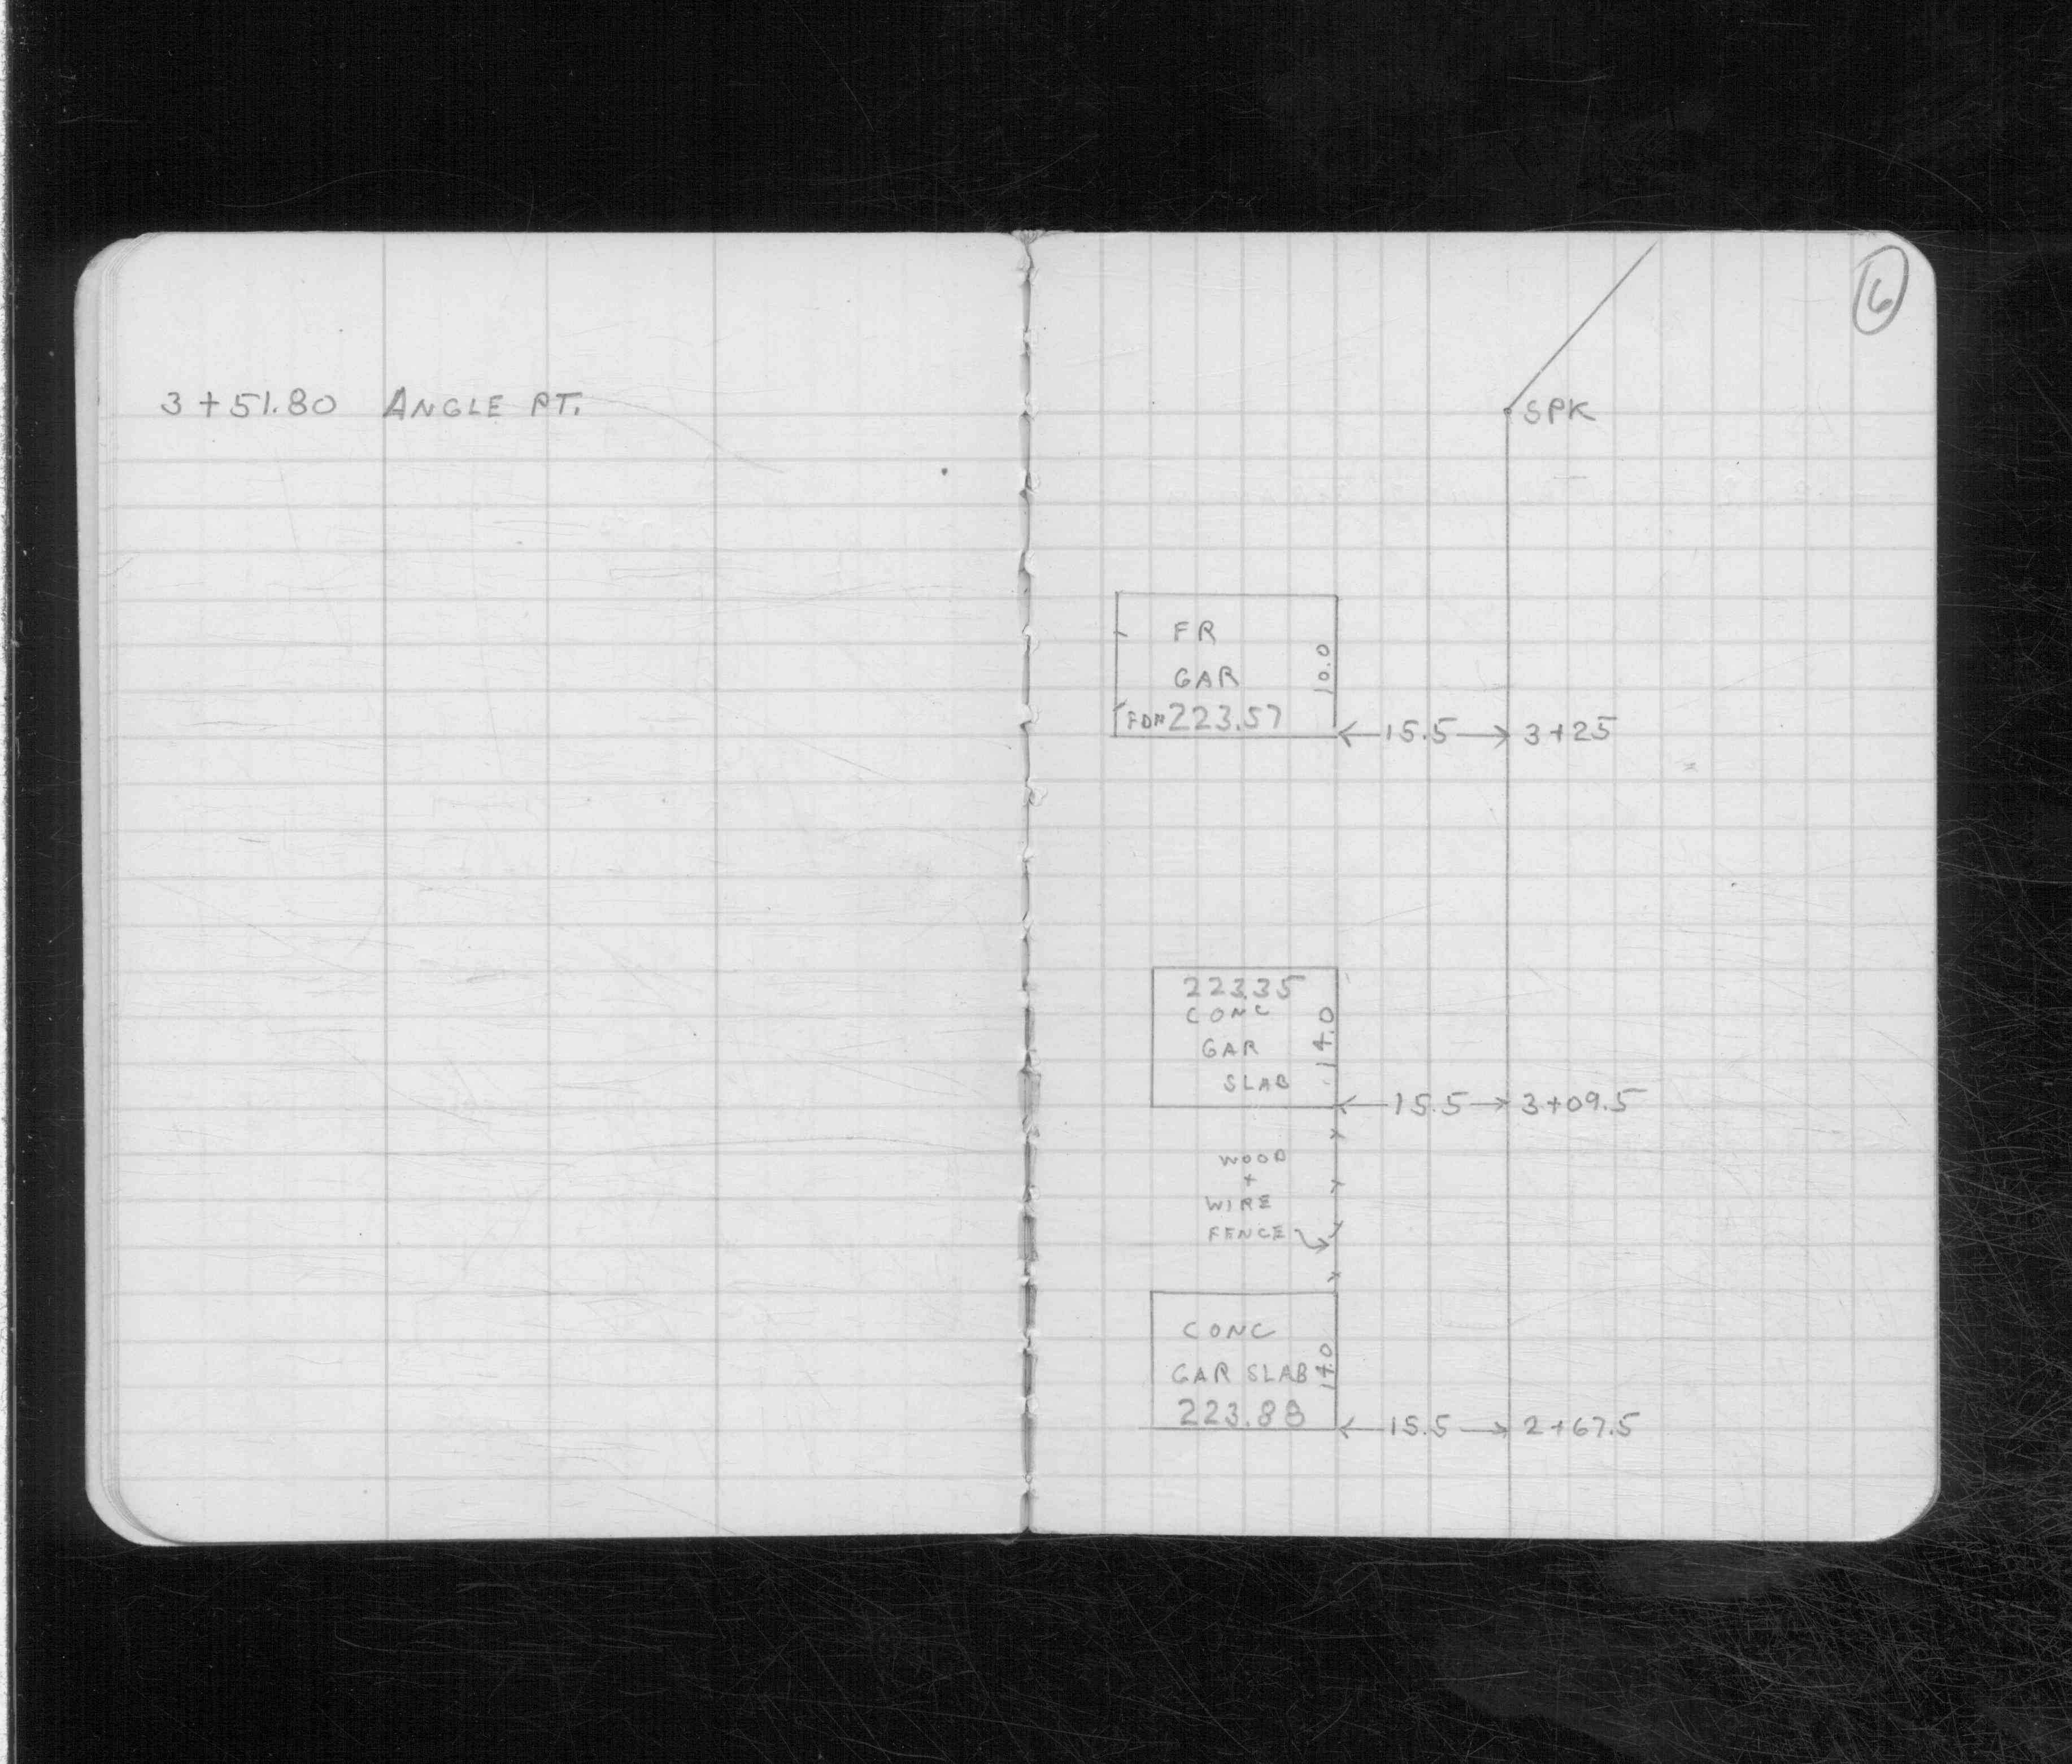 6
3+51.80 ANGLE PT.
SPK
FR
GAR
10.0
FDN 223.57
15.5 3+25
223.35
CONC
GAR
SLAB
14.0
15.5 3+09.5
WOOD
+
WIRE
FENCE
CONC
GAR SLAB
14.0
223.88
15.5 2+67.5